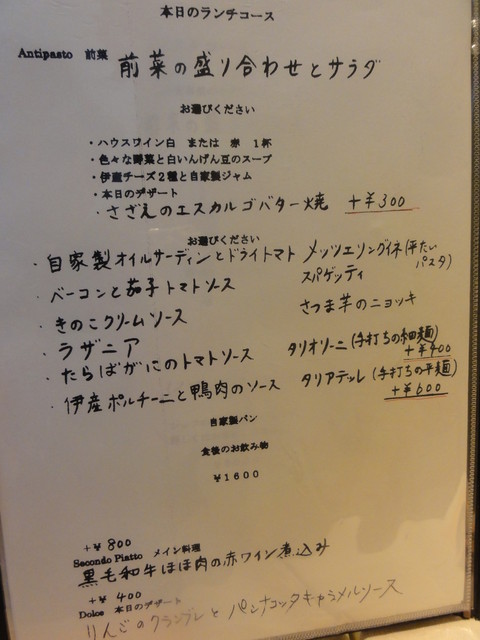 本日のランチコース
Antipasto 前菜 前菜の盛り合わせとサラダ
お選びください
・ハウスワイン白 または 赤 1杯
・色々な野菜と白いんげん豆のスープ
・伊産チーズ2種と自家製ジャム
・本日のデザート
・さざえのエスカルゴバター焼 +¥300
お選びください
・自家製オイルサーディンとドライトマト メッツエリングイネ(平たいパスタ)
・ベーコンと茄子トマトソース スパゲッティ
・きのこクリームソース さつま芋のニョッキ
・ラザニア
・たらばがにのトマトソース タリオリーニ(手打ちの細麺) +¥400
・伊産ポルチーニと鴨肉のソース タリアテッレ(手打ちの平麺) +¥600
自家製パン
食後のお飲み物
¥1600
+¥800
Secondo Piatto メイン料理
黒毛和牛ほほ肉の赤ワイン煮込み
+¥400
Dolce 本日のデザート
りんごのクランブルとパンナコッタキャラメルソース